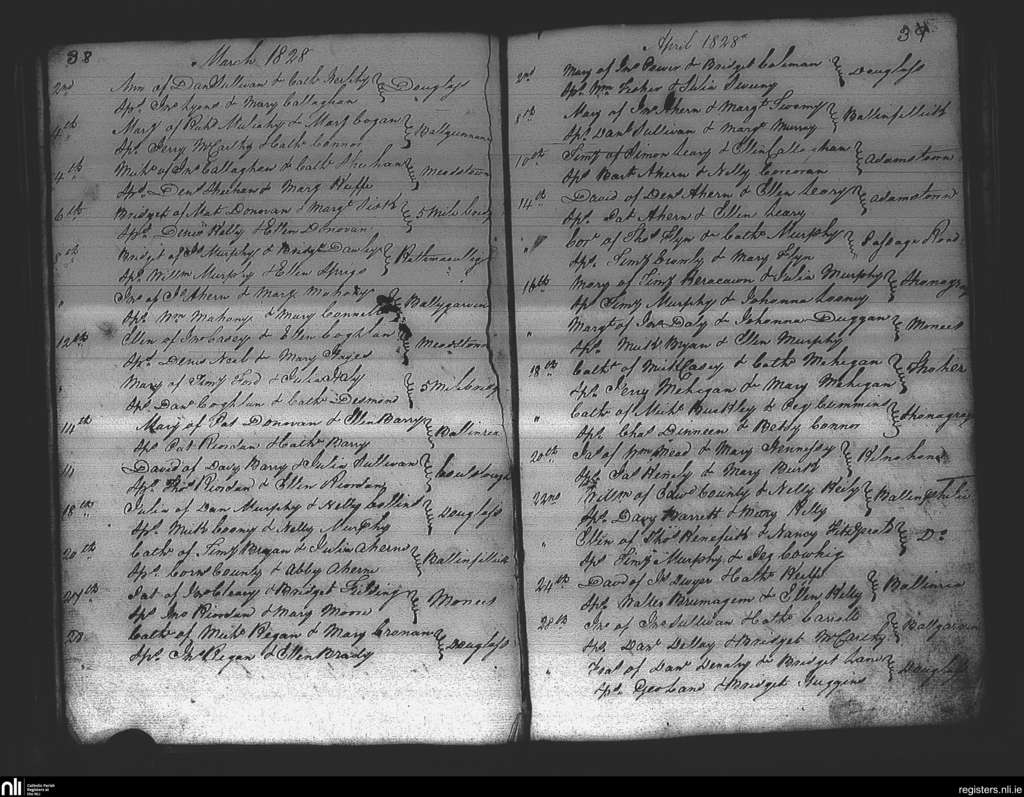 38
March 1828
2nd Ann of Dan Sullivan & Cath. Douglass
Sps. Jno Lyons & Mary Callaghan
4th Mary of Mulcahy & Mary Cogan
Sps. Jerry McCarthy & Cath. Connor
4th Mich. of Jno Callaghan & Cath. Sheehan Meadstown
Sps. Den. Sheehan & Mary Keeffe
6th Bridget of Mat Donovan & Margt. 5 Mile bridg
Sps. Denis Kelly & Ellen Donovan
8th Bridget of Murphy & Bridgt. Dawley
Sps. Willm Murphy & Ellen Sprigs
" Jno of Ahern & Mary Mahony Ballygarvin
Sps. Wm Mahony & Mary Connell
12th Ellen of Jno Casey & Ellen Coghlan Meadstown
Sps. Denis Neil & Mary
" Mary of Timy Ford & Julia 5 Mile bridg
Sps. Danl Coghlan & Cath. Desmond
14th Mary of Pat Donovan & Ellen Barry Ballinrea
Sps Pat Riordan & Cath. Barry
14 David of Davy Barry & Julia Sullivan
Sps. Thos Riordan & Ellen Riordan
18th Julia of Dan Murphy & Nelly Collins Douglass
Sps. Mich Coony & Nelly Murphy
20th Cath. of Timy Bryan & Julia Ahern
Sps. Corns County & Abby Ahern
27th Pat of Jno Cleary & Bridget Monees
Sps. Jno Riordan & Mary Moore
28 Cath. of Mich. Regan & Mary Cronan Douglass
Sps. Jno Regan & Ellen Brady
April 1828
2nd Mary of Jno Power & Bridget Coleman Douglass
Sps. Wm Fisher & Julia Sweeny
8th Mary of Jno Ahern & Margt. Sweeny
Sps. Danl Sullivan & Margt. Murray
10th Timy of Simon Leary & Ellen Callaghan Adamstown
Sps. Bart Ahern & Nelly Corcoran
14th David of Denis Ahern & Ellen Leary Adamstown
Sps. Pat Ahern & Ellen Leary
" Cors. of Thos Flyn & Cath. Murphy Passage Road
Sps. Timy & Mary Flyn
16th Mary of Timy & Julia Murphy
Sps Timy Murphy & Johanna Looney
" Margt. of Jno Daly & Johanna Duggan Monees
Sps. Mich Bryan & Ellen Murphy
18th Cath. of Mich Casey & Cath. Mehigan
Sps. Jerry Mehigan & Mary Mehigan
" Cath. of Mich. Buckley & Peg Cummins
Sps. Chas Dinneen & Betsy Connor
20th Jas of Wm Mead & Mary Hennessy
Sps. Jas & Mary Burk
22nd Willm of Edwd County & Nelly Kely
Sps. Davy Barrett & Mary Kelly
" Ellen of Thos & Nancy FitzGerald Do
Sps Timy Murphy & Peg
24th David of Dwyer & Cath. Keeffe Ballinrea
Sps. Brumagem & Ellen Kelly
28th Jno of Jno Sullivan & Cath. Carroll Ballgarvin
Sps. Danl & Bridget McCarthy
" of Danl & Bridget Lane Douglass
Sps. Geo Lane & Bridget
nli
Catholic Parish
Registers at
the NLI
registers.nli.ie